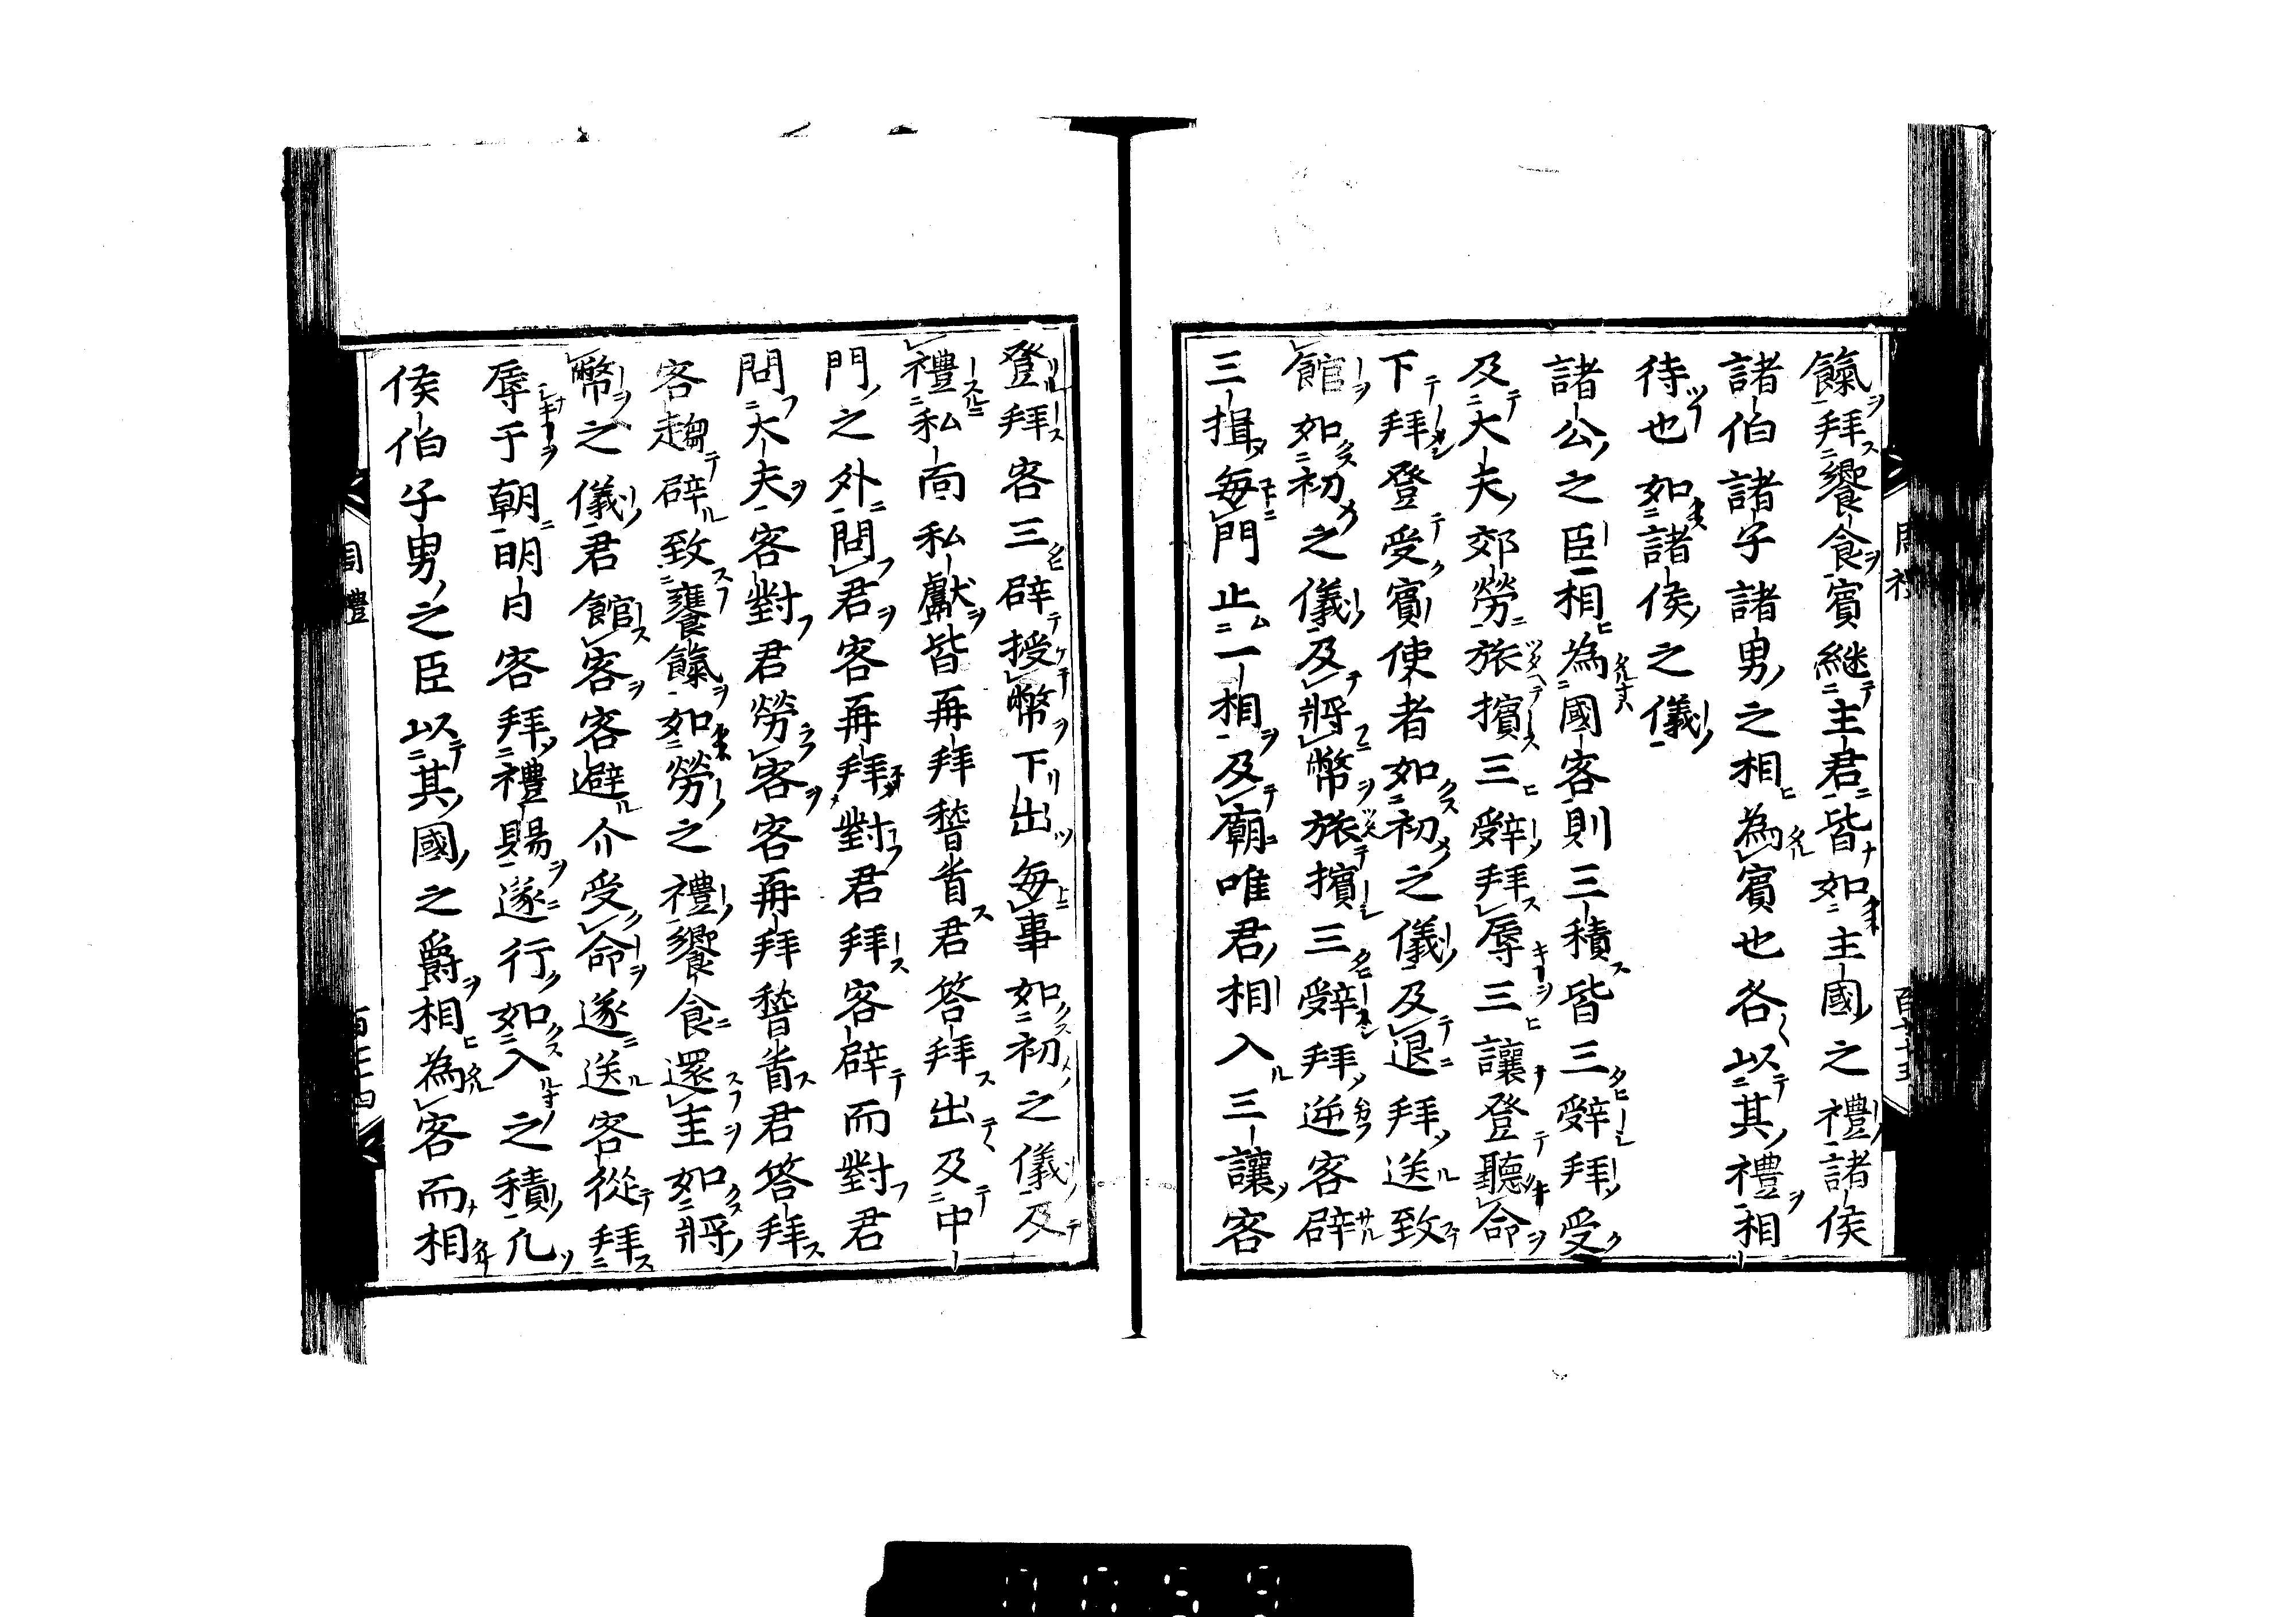 餼拜饗食賓繼主君皆如主國之禮諸侯
諸伯諸子諸男之相為賓也各以其禮相
待也如諸侯之儀
諸公之臣相為國客則三積皆三辤拜受
及大夫郊勞旅擯三辤拜辱三讓登聽命
下拜登受賓使者如初之儀及退拜送致
館如初之儀及將幣旅擯三辤拜逆客辟
三揖每門止一相及廟唯君相入三讓客
登拜客三辟授幣下出每事如初之儀及
禮私面私獻皆再拜稽首君答拜出及中
門之外問君客再拜對君拜客辟而對君
問大夫客對君勞客客再拜稽首君答拜
客趨辟致饔餼如勞之禮饗食還圭如將
幣之儀君館客客避介受命遂送客從拜
辱于朝明日客拜禮賜遂行如入之積凡
侯伯子男之臣以其國之爵相為客而相
周禮